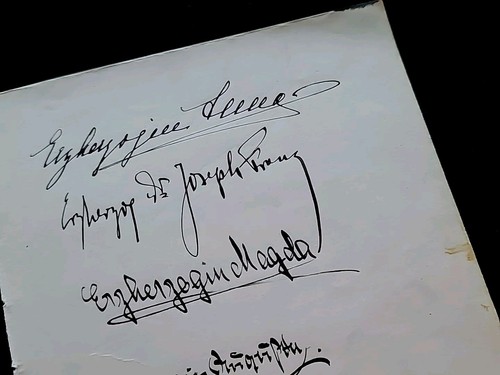 Erzherzogin Anna
Erzherzog Dr Joseph Franz
Erzherzogin Magda